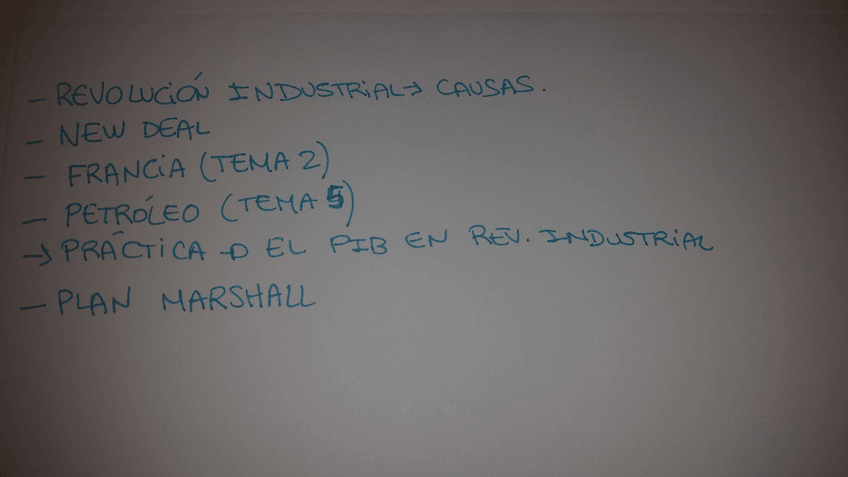 - REVOLUCIÓN INDUSTRIAL → CAUSAS.
- NEW DEAL
- FRANCIA (TEMA 2)
- PETRÓLEO (TEMA 5)
→ PRÁCTICA → EL PIB EN REV. INDUSTRIAL
- PLAN MARSHALL